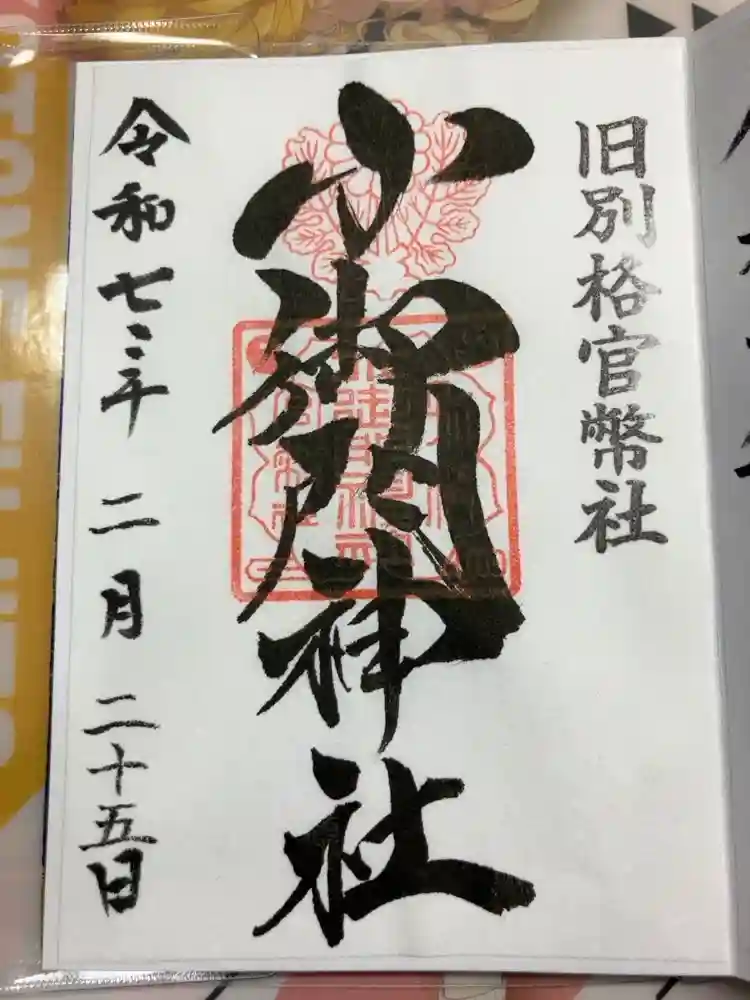 旧別格官幣社
小御門神社
令和七年二月二十五日